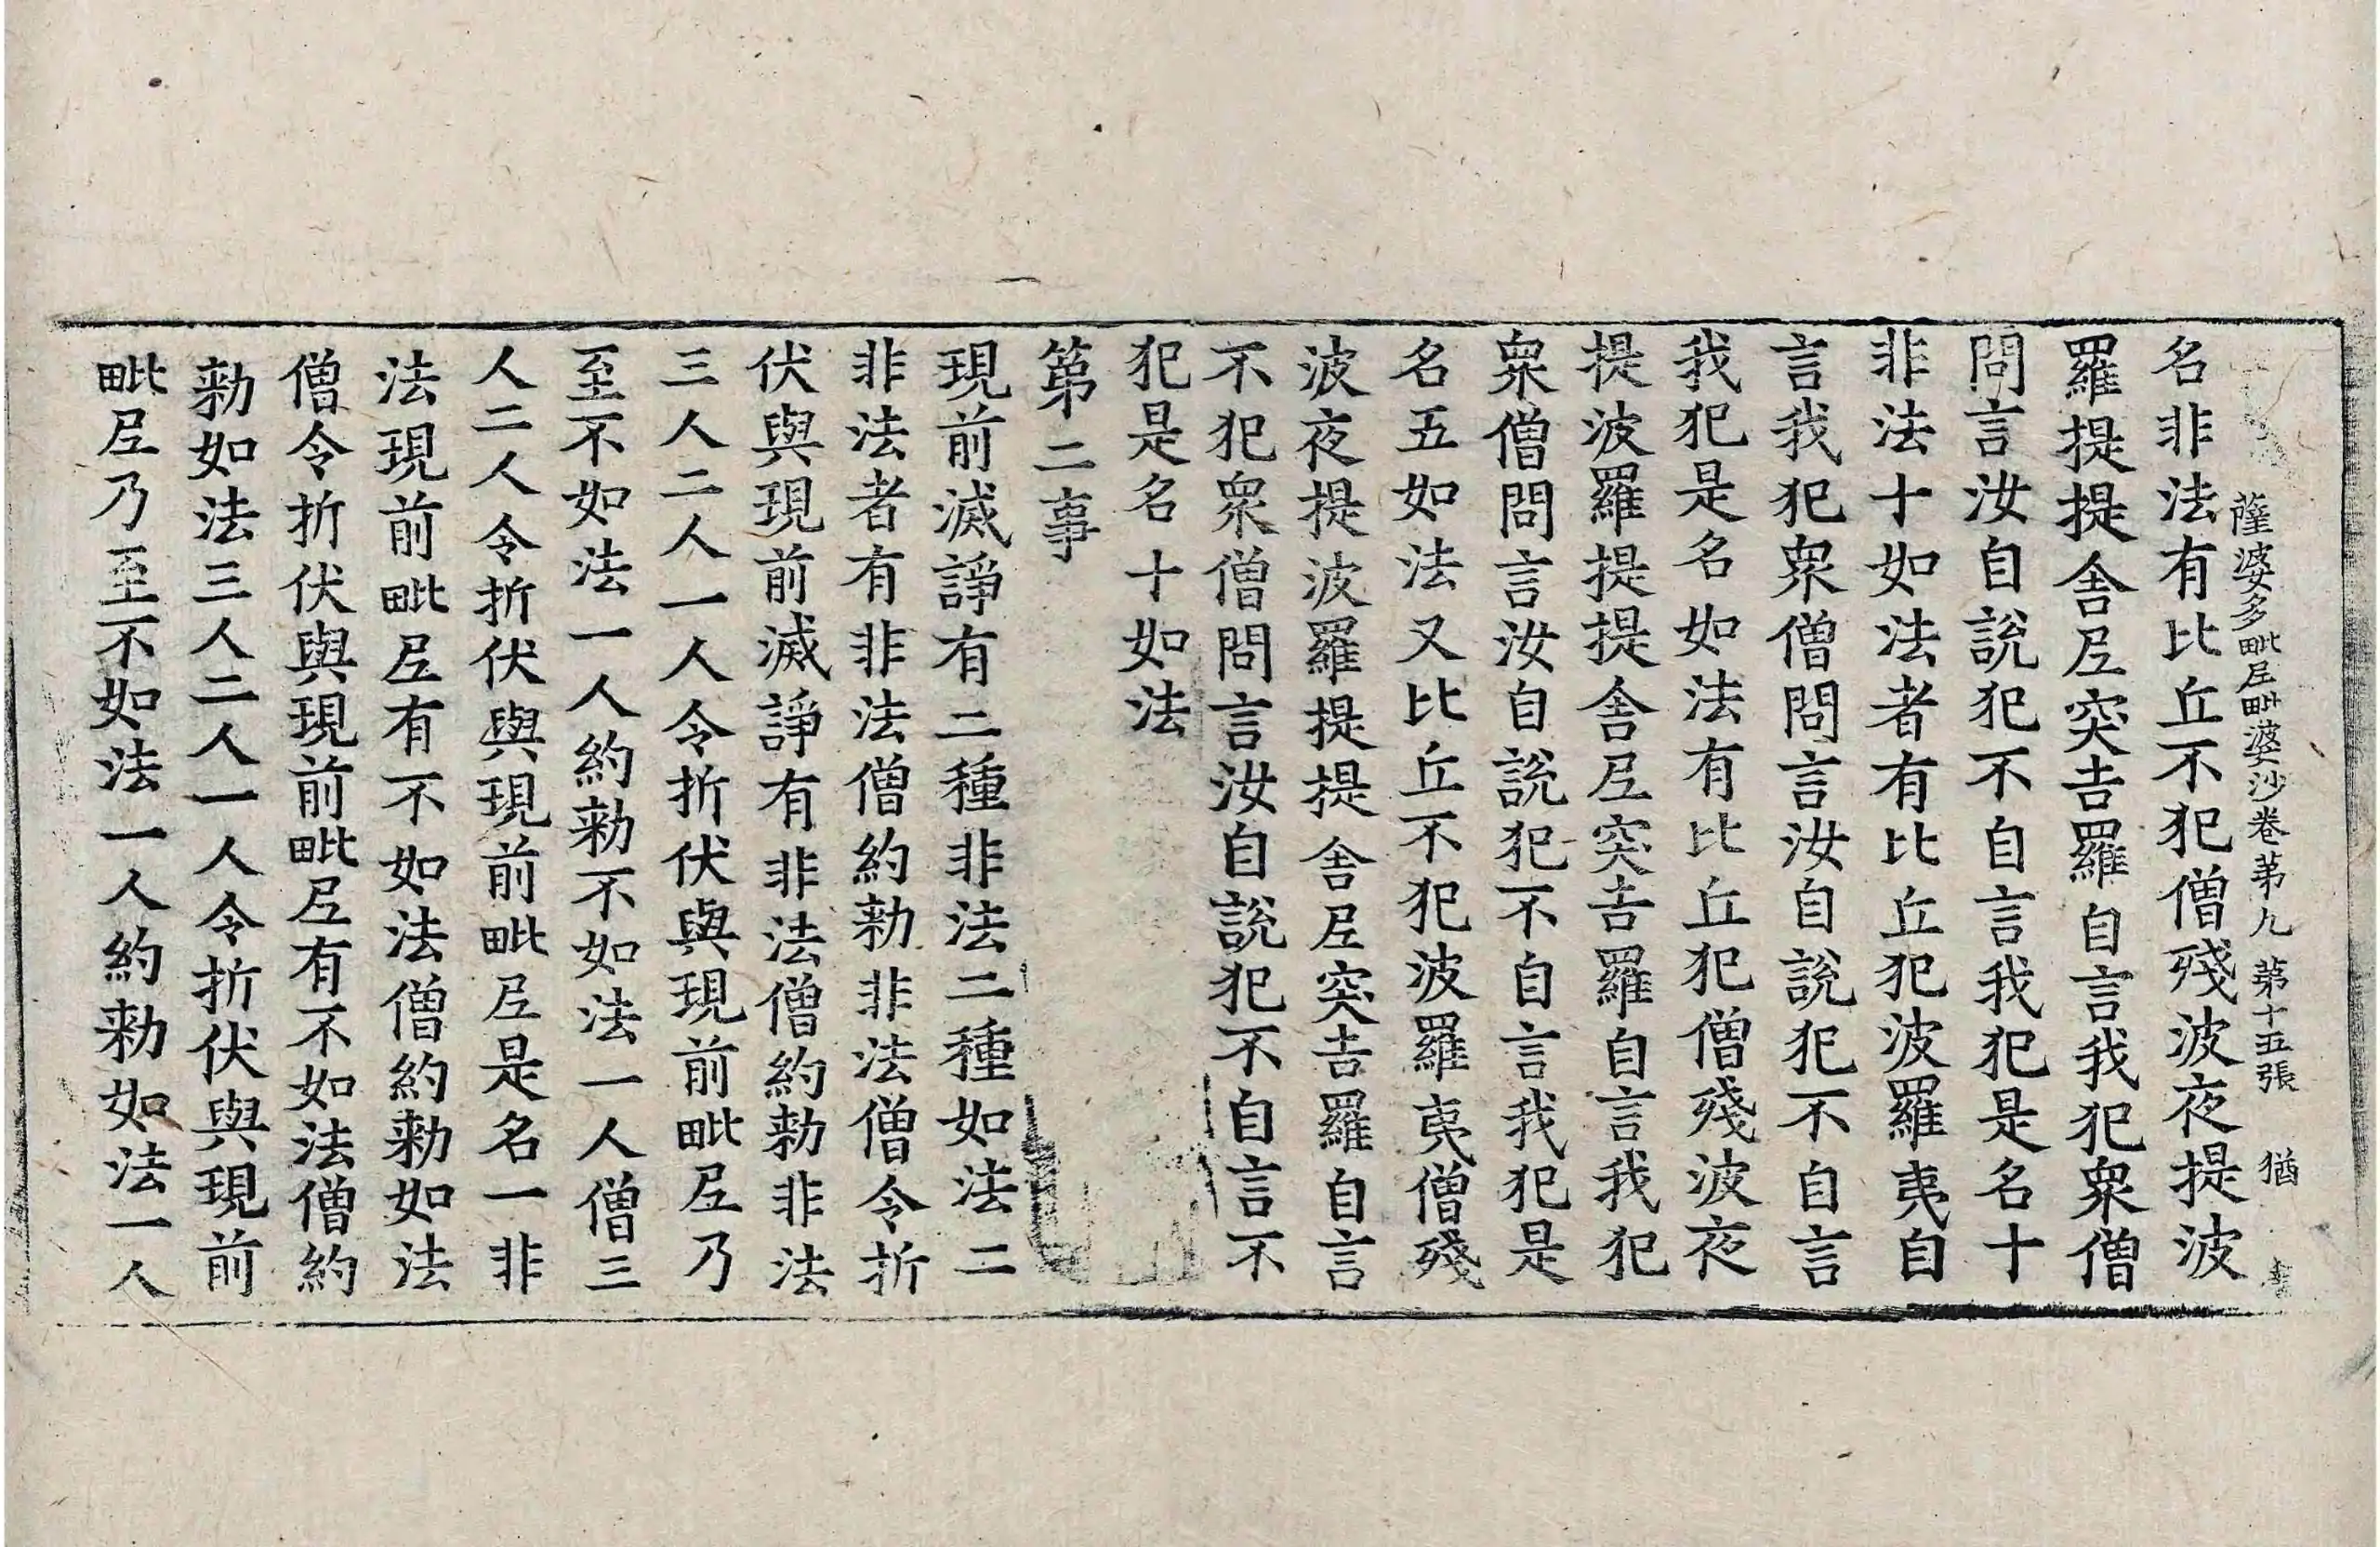 薩婆多毗尼毗婆沙卷苐九　苐十五張　猶
名非法有比丘不犯僧殘波夜提波
羅提提舍尼突吉羅自言我犯衆僧
問言汝自說犯不自言我犯是名十
非法十如法者有比丘犯波羅夷自
言我犯衆僧問言汝自說犯不自言
我犯是名如法有比丘犯僧殘波夜
提波羅提提舍尼突吉羅自言我犯
衆僧問言汝自說犯不自言我犯是
名五如法又比丘不犯波羅夷僧殘
波夜提波羅提提舍尼突吉羅自言
不犯衆僧問言汝自說犯不自言不
犯是名十如法
第二事
現前滅諍有二種非法二種如法二
非法者有非法僧約勑非法僧令折
伏與現前滅諍有非法僧約勑非法
三人二人一人令折伏與現前毗尼乃
至不如法一人約勑不如法一人僧三
人二人令折伏與現前毗尼是名一非
法現前毗尼有不如法僧約勑如法
僧令折伏與現前毗尼有不如法僧約
勑如法三人二人一人令折伏與現前
毗尼乃至不如法一人約勑如法一人